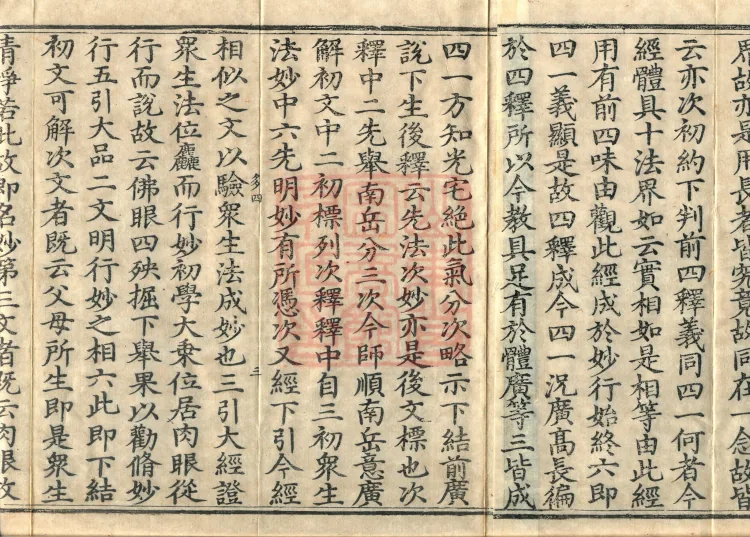 用故亦是用長者皆究竟故同在一念故皆
云亦次初約下判前四釋義同四一何者今
經體具十法界如云實相如是相等由此經
用有前四味由觀此經成於妙行始終六即
四一義顯是故四釋成今四一況廣高長徧
於四釋所以今教具足有於體廣等三皆成
四一方知光宅絕此氣分次略示下結前廣
說下生後釋云先法次妙亦是後文標也次
釋中二先舉南岳分三次今師順南岳意廣
解初文中二初標列次釋釋中自三初衆生
法妙中六先明妙有所憑次又經下引今經
多四
三
相似之文以驗衆生法成妙也三引大經證
衆生法位麤而行妙初學大乗位居肉眼從
行而說故云佛眼四殃掘下舉果以勸脩妙
行五引大品二文明行妙之相六此即下結
初文可解次文者既云父母所生即是衆生
清淨若此故即名妙第三文者既云肉眼故